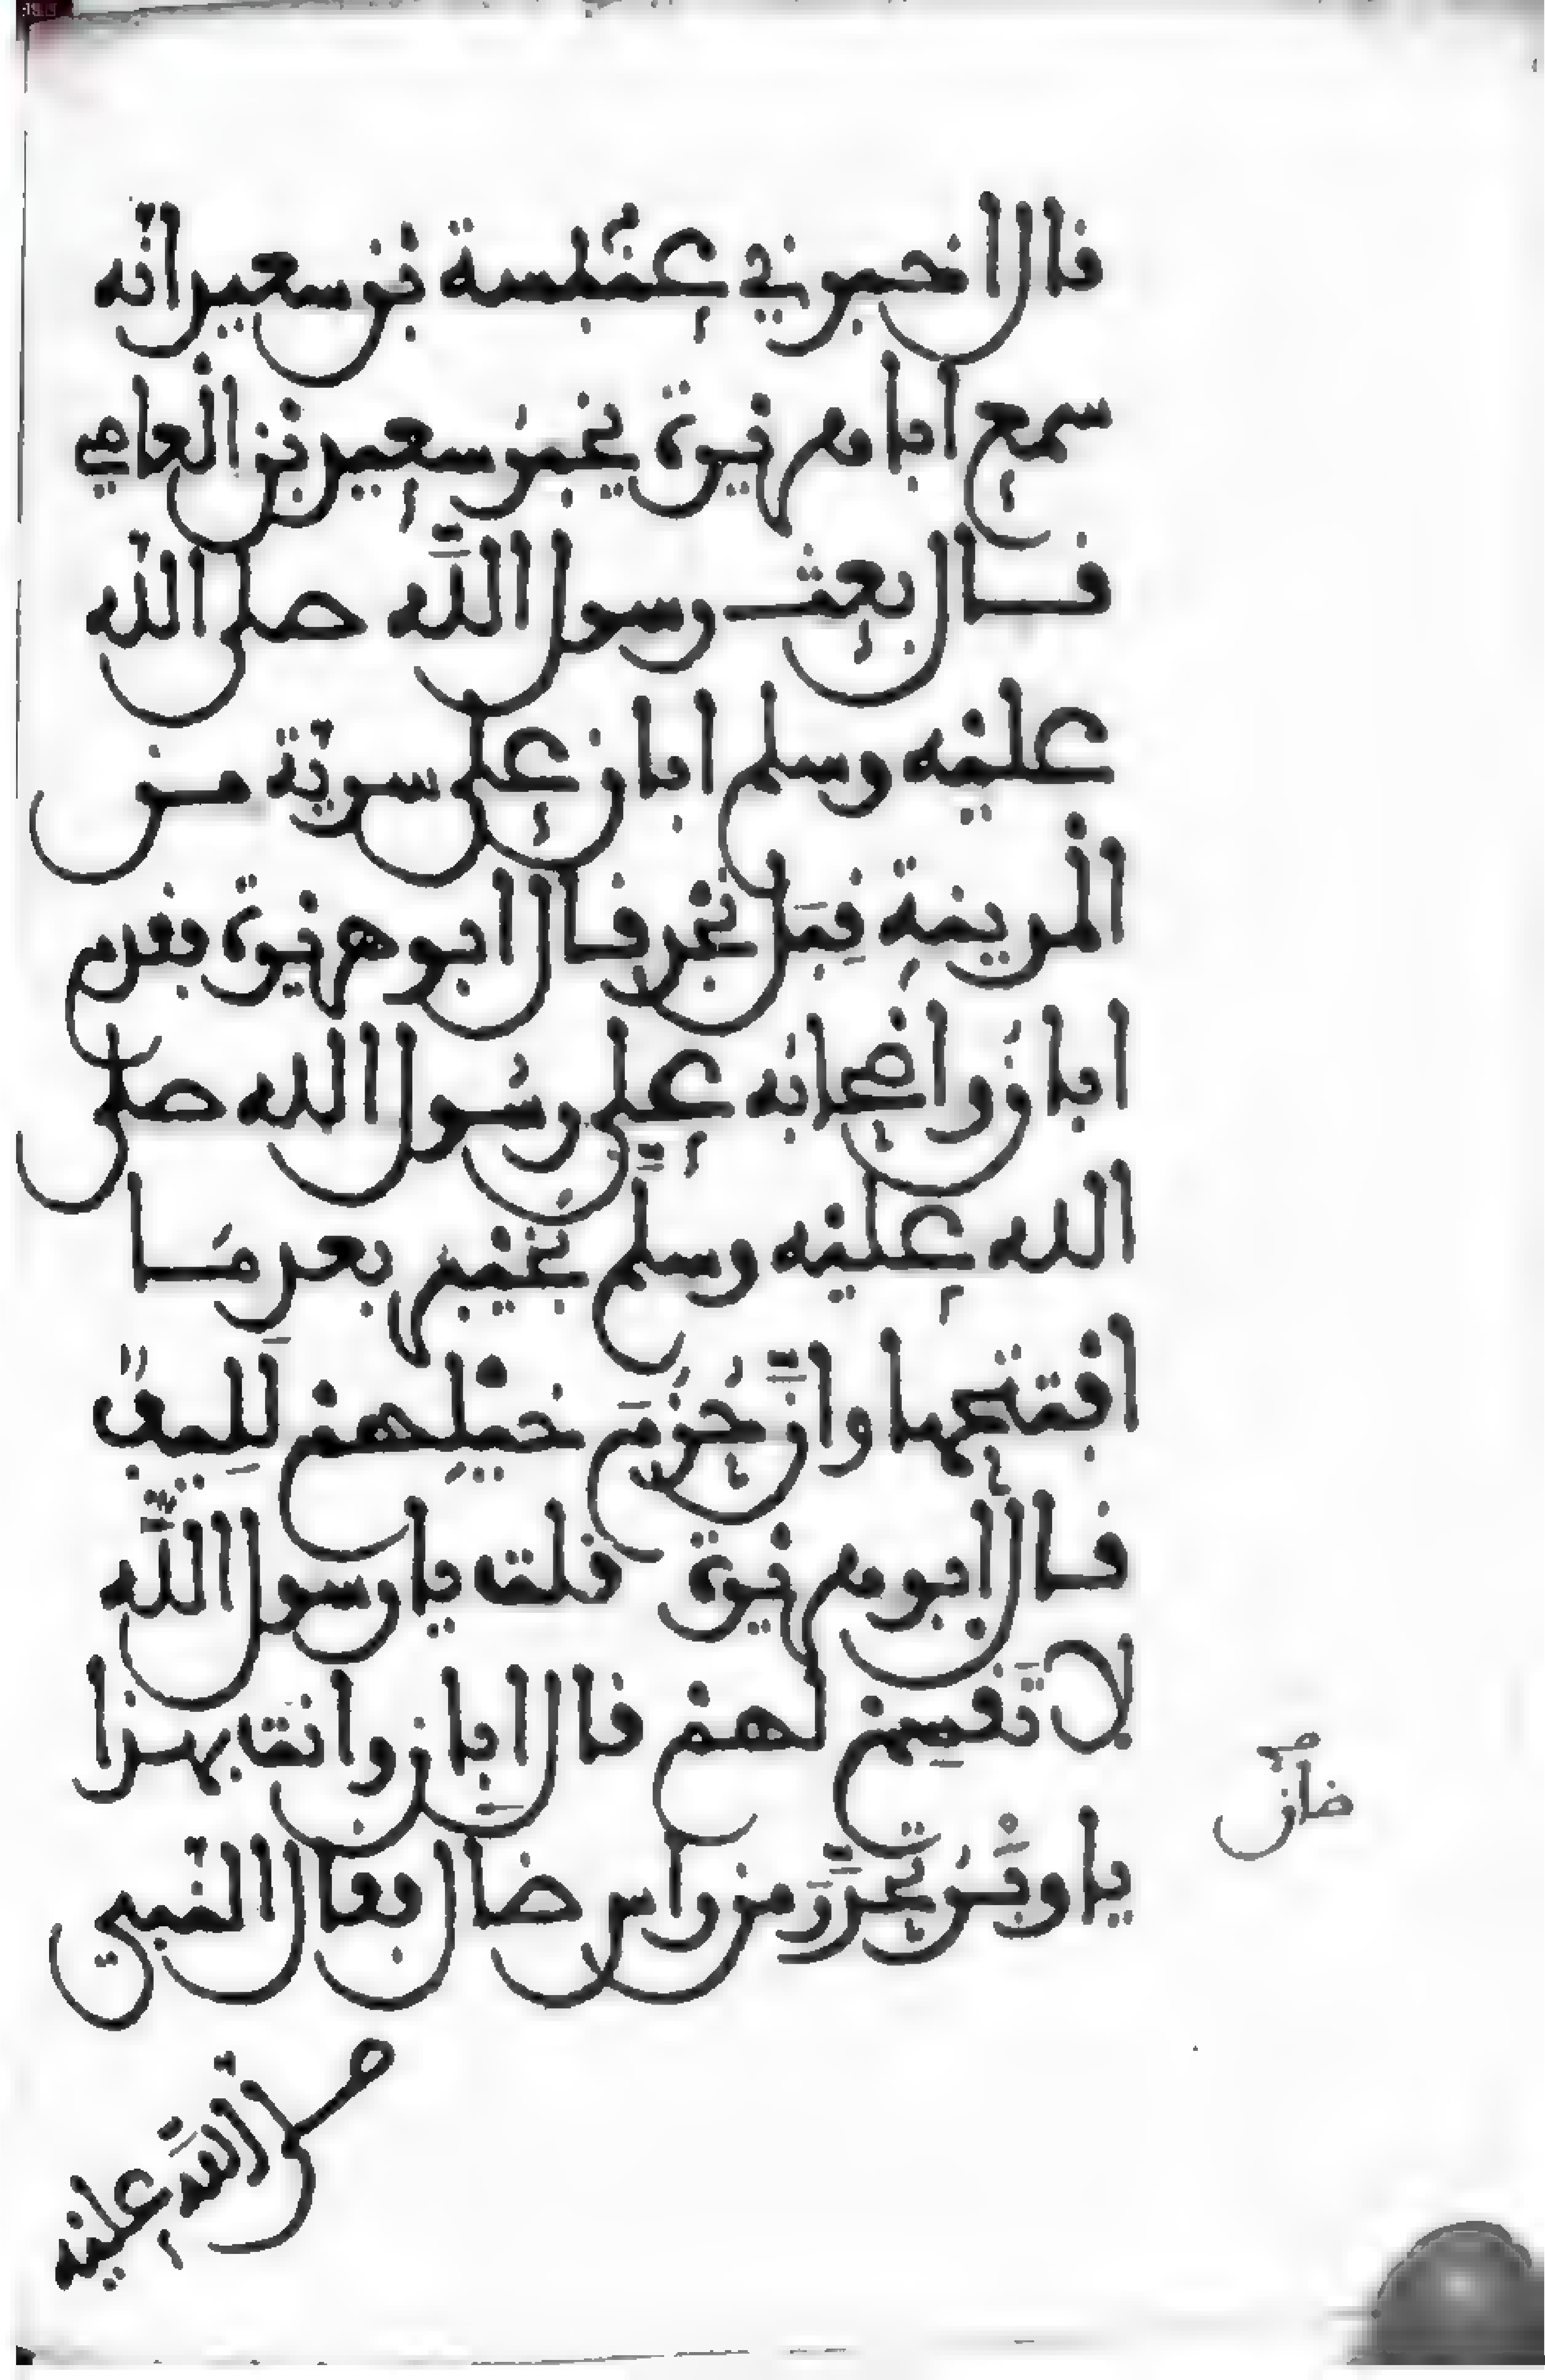 قال اخبرني عنبسة بن سعيد انه
سمع ابا هريرة يخبر سعيد بن العاصي
قال بعث رسول اللَّه صلى الله
عليْه وسلم ابان على سرية من
المدينة قِبَل نجْد قال ابو هريرة فقدم
ابان واصحابه على رسُول الله صلى
الله عليْه وسلم بخيْبر بعد مَا
افتتحها وانَّ حُزُمَ خيْلِهمْ لَلِيفٌ
قال أبو هريرة قلت يا رسول اللَّه
لا تَقْسِمْ لهمْ قال ابان وانت بهذا
يا وبْرُ تحَدَّرَ من راس ضال فقال النبي
صلى اللَّه عليْه
ضان
صح